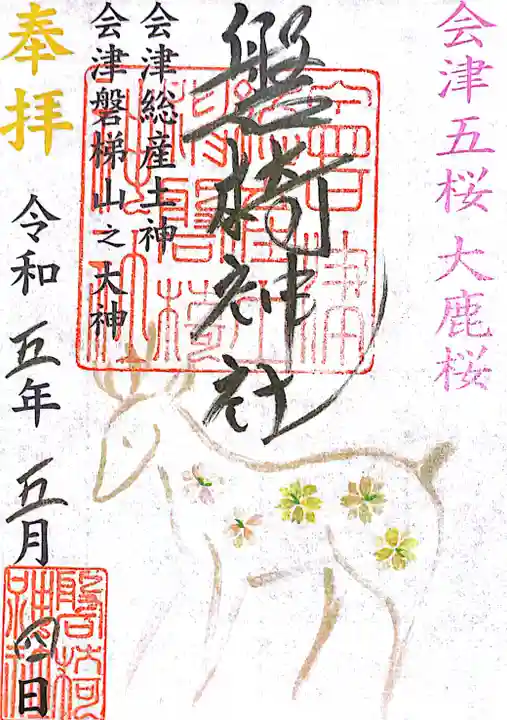 会津五桜 大鹿桜
磐椅神社
会津総産土神
会津磐梯山之大神
奉拝
令和 五年 五月 四日